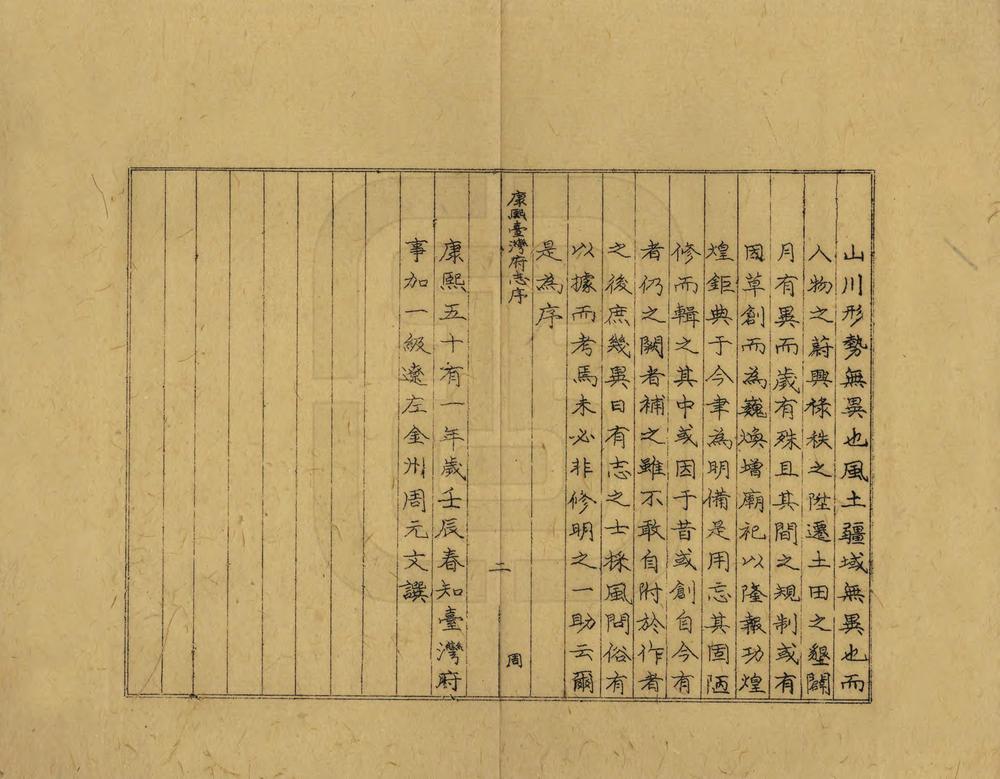 山川形勢無異也風土疆域無異也而
人物之蔚興祿秩之陞遷土田之墾闢
月有異而歲有殊且其間之規制或有
因草創而為巍煥增廟祀以隆報功煌
煌鉅典于今聿為明備是用忘其固陋
修而輯之其中或因于昔或創自今有
者仍之闕者補之雖不敢自附於作者
之後庶幾異日有志之士採風問俗有
以據而考焉未必非修明之一助云爾
是為序
康熙臺灣府志序
二
周
康熙五十有一年歲壬辰春知臺灣府
事加一級遼左金州周元文譔